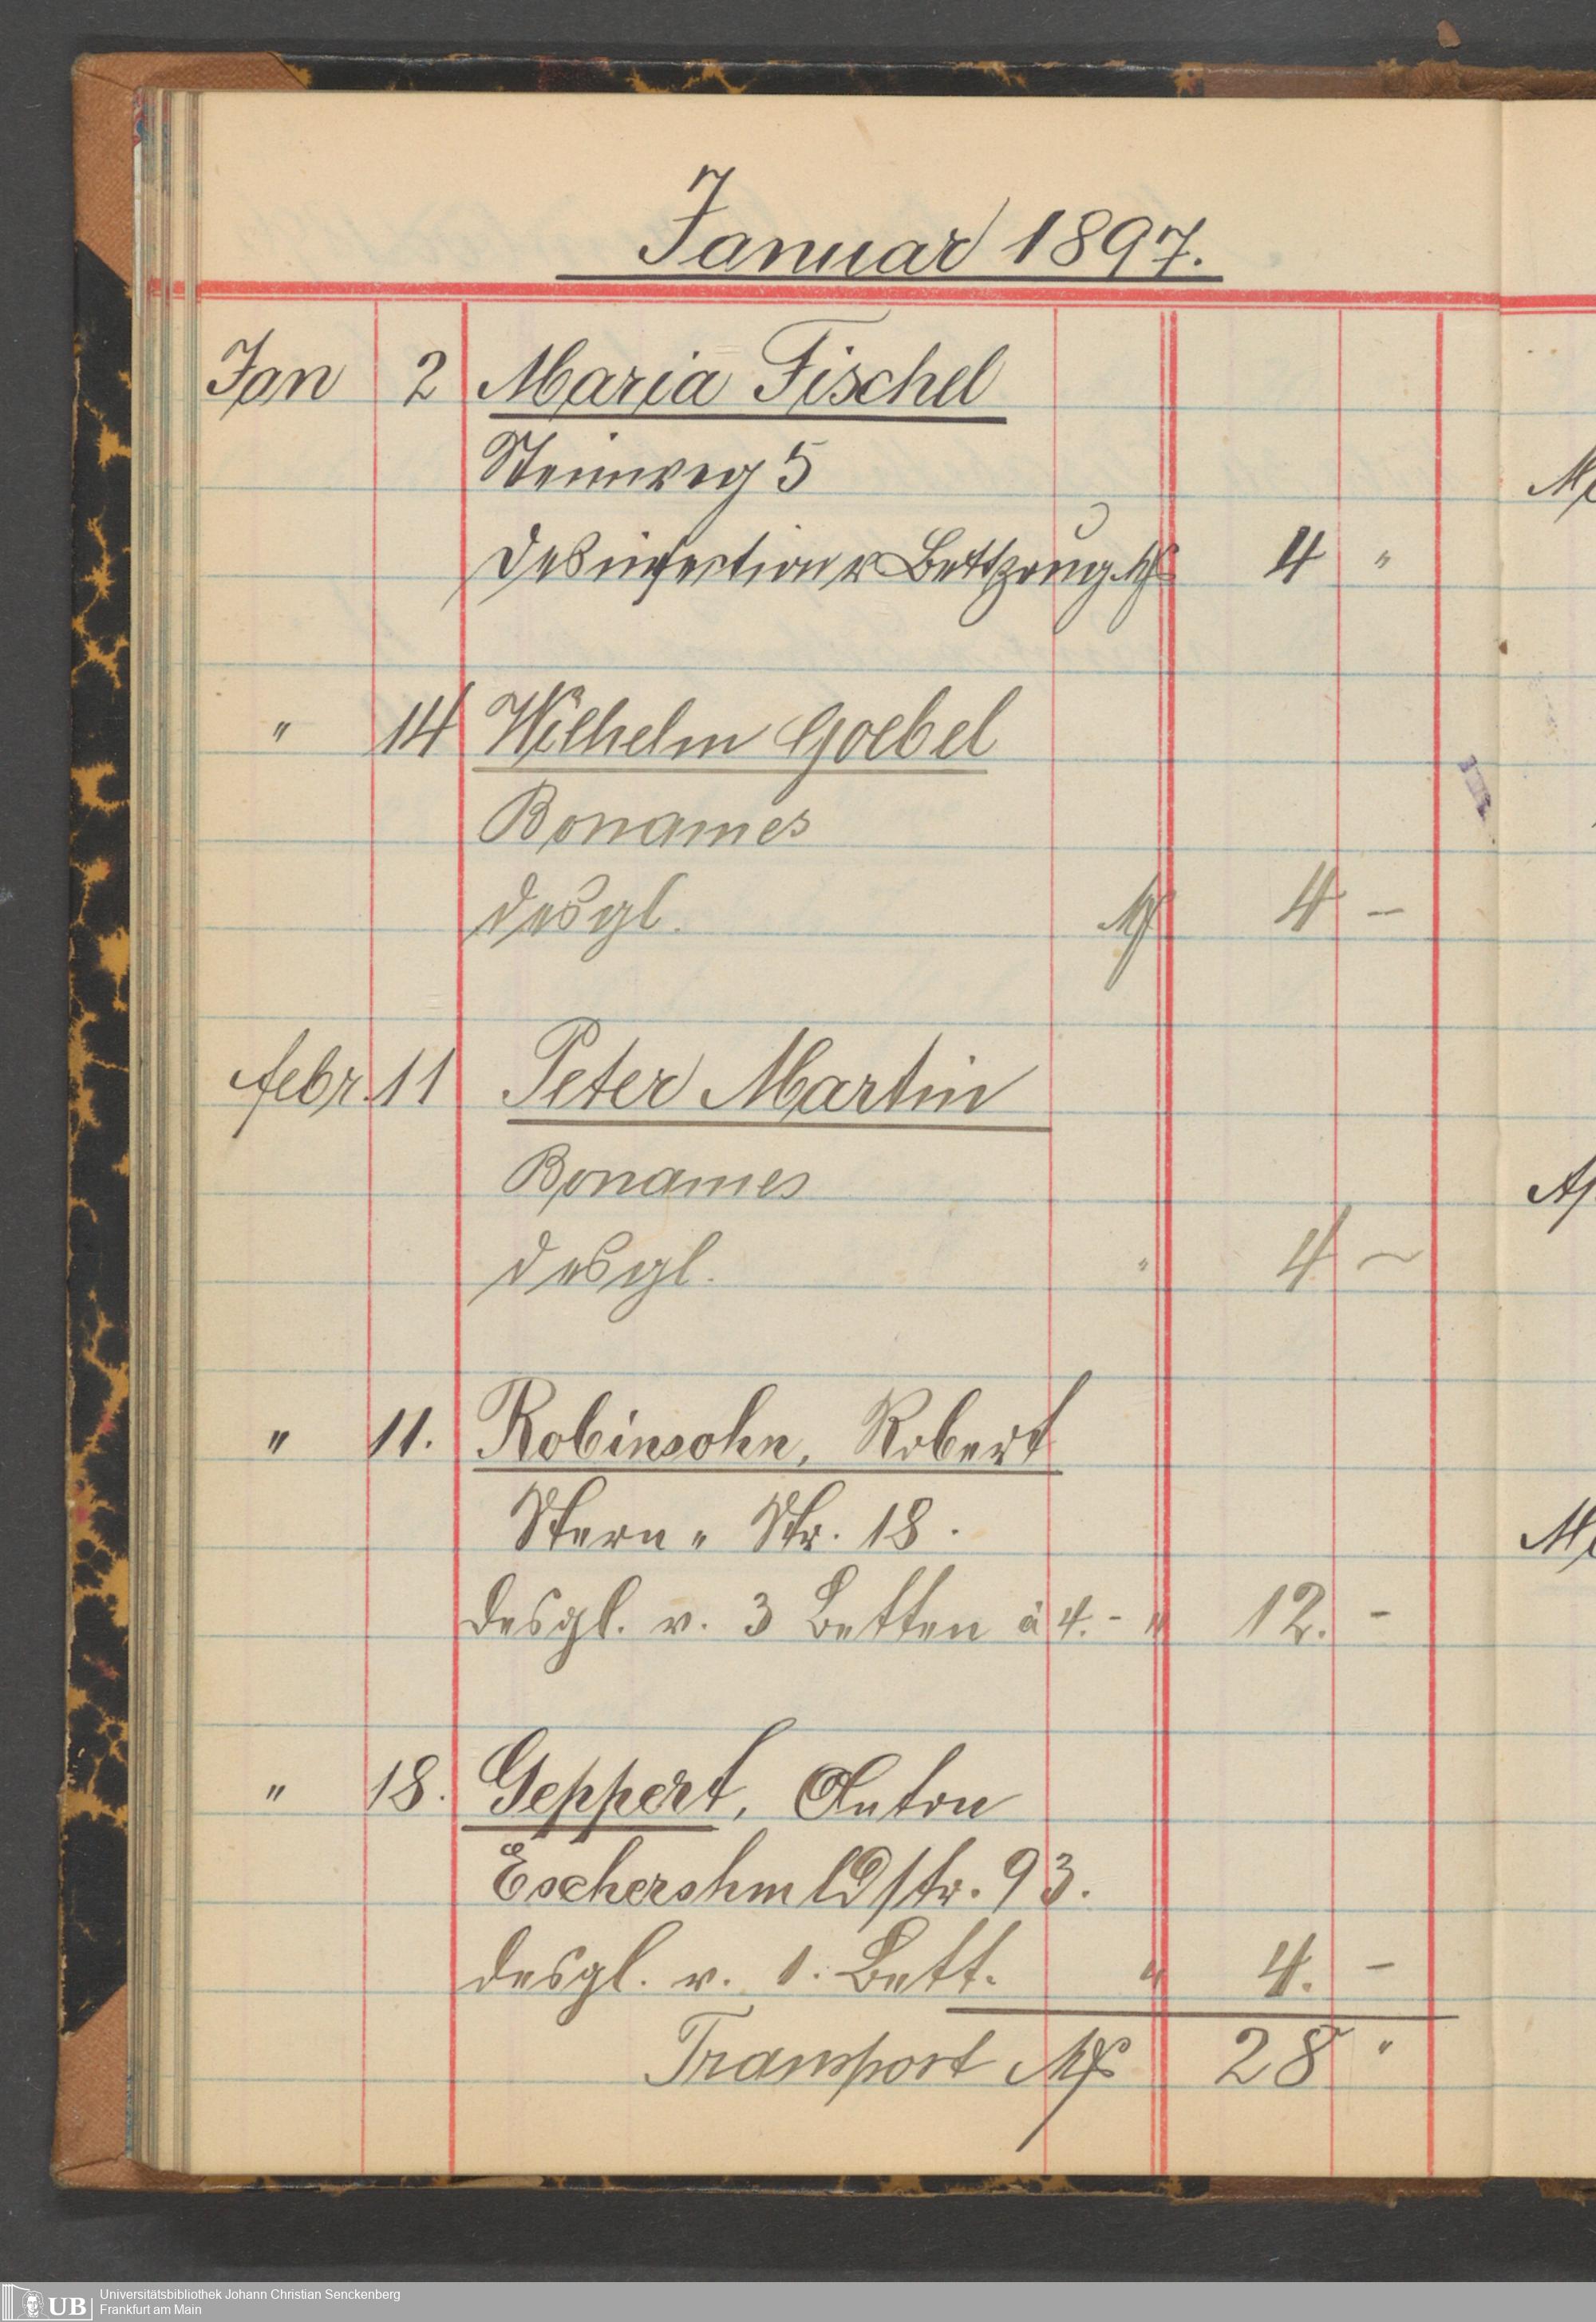 Januar 1897.
Jan 2 Maria Fischel
Steinweg 5
Desinfection v Bettzeug M 4 "
" 14 Wilhelm Goebel
Bonames
desgl. M 4 -
febr. 11 Peter Martin
Bonames
desgl. " 4 -
" 11. Robinsohn, Robert
Stern " Str. 18.
desgl. v. 3 Betten à 4. - " 12. -
" 18. Geppert, Anton
Eschershm ldstr. 93.
desgl. v. 1. Bett. " 4. -
Transport M 28 "
Ap
UB Universitätsbibliothek Johann Christian Senckenberg
Frankfurt am Main